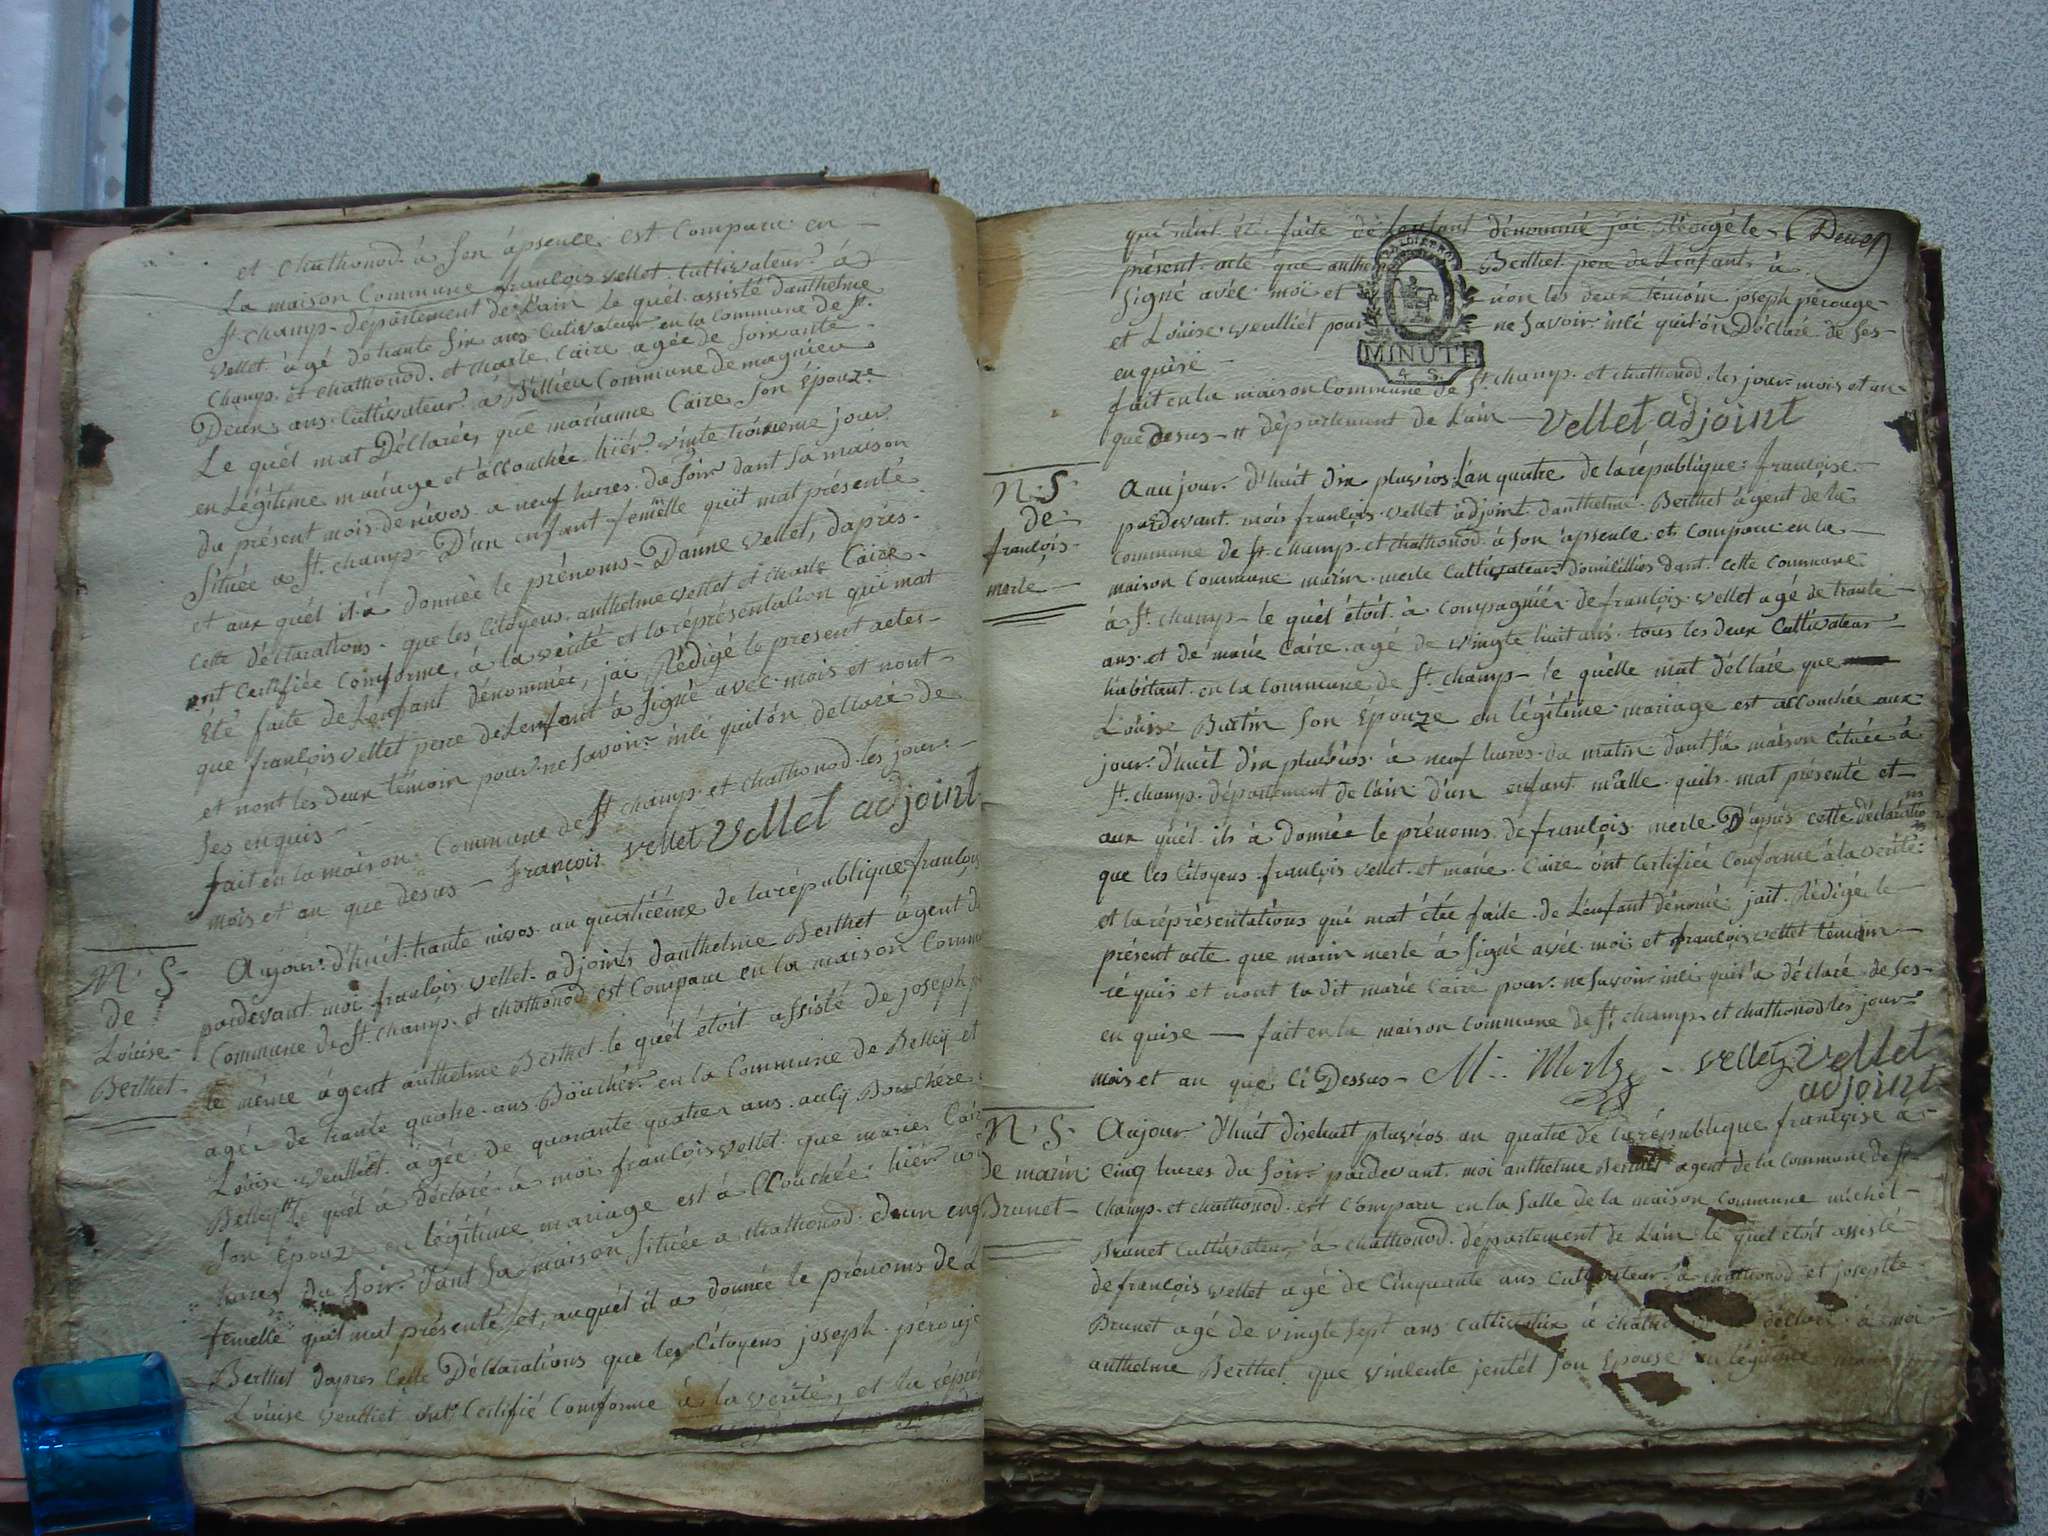 et Chathonod. à son àpsence. est Comparu en
La maison Commune françois vellet. Cultivateur à
st champ - département de Lain le quél. assisté danthelme
vellet. à agé de trante six ans Cultivateur en la commune de st.
champ. et chathonod. et charle. Caire agée de soixante
Deux ans. Cultivateur à Billieu Commune de magnieu
Le quél mat Déclarée, que marianne Caire son Epouze
en Légitime mariage et àccouchée hiér vinte troixieme jour
du présent mois de nivos. a neuf hures. du soir dant sa maison
située a st. champ - D'un enfant femelle quit mat présenté
et aux quél il à donnée le prénoms - Danne vellet, dapres.
Cette déclarations. que les Citoyens. anthelme vellet et charle Caire.
ont Certifiée Comforme, à la vérité et la représentation qui mat
été faite de Lenfant dénommée, jai Rédigé le present actes -
que françois vellet pere de Lenfant à signé avec mois et nont
et nont les deux témoin pour ne savoir. inlé quil ón decloré de
ses enquis -
fait en la maison Commune de st champ. et chathonod. les jour. -
mois et an que desus - françois vellet Vellet adjoint
N. S.
de
Louise -
Berthet -
Aujour. d'huit. trante nivos. an quatriéeme de la république françois
pardevant moi françois vellet adjoints danthelme Berthet àgent de
Commune de st. champ. et chathonod est Comparu en la maison Comm
le même àgent anthelme Berthet le quél étoit assisté de joseph
agée de trante quatre ans Boùchér en la Commune de Belleÿ et
Loùise veulliét. àgée de quarante quatrer ans. aulÿ Bouchére
Belleÿ le quél à déclaré à moi françois vellet. que marie Caire
son Epouze en légitime mariage est à ccouchée hiér a
hures du soir. dant sa maison située a chathonod. d'un enf
femelle quit mat présenté et, auquél il a donnée le prénoms de L
Berthet dapres Cette Déclarations que les Citoyens joseph. pérouje
Loùise veulliet ont Certifié Comforme à la verité, et la répré
qui mat été faite de Lenfant dénommé jai Rédigé le - Deuon
présent. acte que anthe Berthet pere de Lenfant à
signé avec moi et non les deux temoin joseph pérouge -
et Loùise veulliét pour ne savoir inlé quil ón Déclaré de ses -
enquise -
MINUTE
4 S.
fait en la maison Commune de st. champ. et chathonod. les jour. mois et an
que desus - département de Lain - Vellet adjoint
N. S.
de -
françois -
merle -
Auujour. d'huit dix pluvios. L'an quatre de la république. francoise -
pardevant. mois françois. vellet àdjoint. danthelme. Berthet àgent de la
commune de st. champ. et chathonod. à son àpsence. et Comparu en la
maison Commune marin. merle Cultivateur domicilliés dant. cette Commune
à st. champ - le quél étoit. à Compagniée de françois. vellet agé de trante -
ans et de marie Caire. agé de vingte huit ans. tous les deux Cultivateur
habitant. en la Commune de st. champ - le quélle mat déclaré que
Loùise Burtin son Epouze en légitime mariage est accouchée aux
jour. d'huit dix pluvios. à neuf hures. du matin dant sa maison cituée à
st. champ. département de lain d'un enfant malle. quils mat présenté et -
aux quél. ils à donnée le prénoms de françois merle. D'après cette déclaration
que les Citoyens françois vellet. et marie. Caire ont Certifiée Conforme à la vérité.
et la réprésentations qui mat étée faite de Lenfant dénomé. jait Rédigé le
présent acte que marin merle à signé avéc. moi et françois vellet témoin -
réquis et nont la dit marié Caire pour. ne savoir inlé quil à déclaré. de ses -
enquise - fait en la maison Commune de st. champ. et chathonod les jour
mois et an que ci Dessus - M. Merle - vellet Vellet
adjoint
N. S.
De marin
Brunet -
Aujour d'huit dixhuit pluvios an quatre de la république françoise à -
Cinq hures du soir pardevant. moi anthelme Berthet agent de la Commune de st
champ. et chathonod. est Comparu en la salle de la maison Commune michel -
Brunet Cultivateur à chathonod. département de Lain le quél étoit assisté
de françois vellet agé de Cinquante ans Cultivateur à chathonod et josephte -
Brunet agé de vingte sept ans Cultivatrix à chatho déclaré à moi
anthelme Berthet. que vinlente jentét son Epouse en légitime